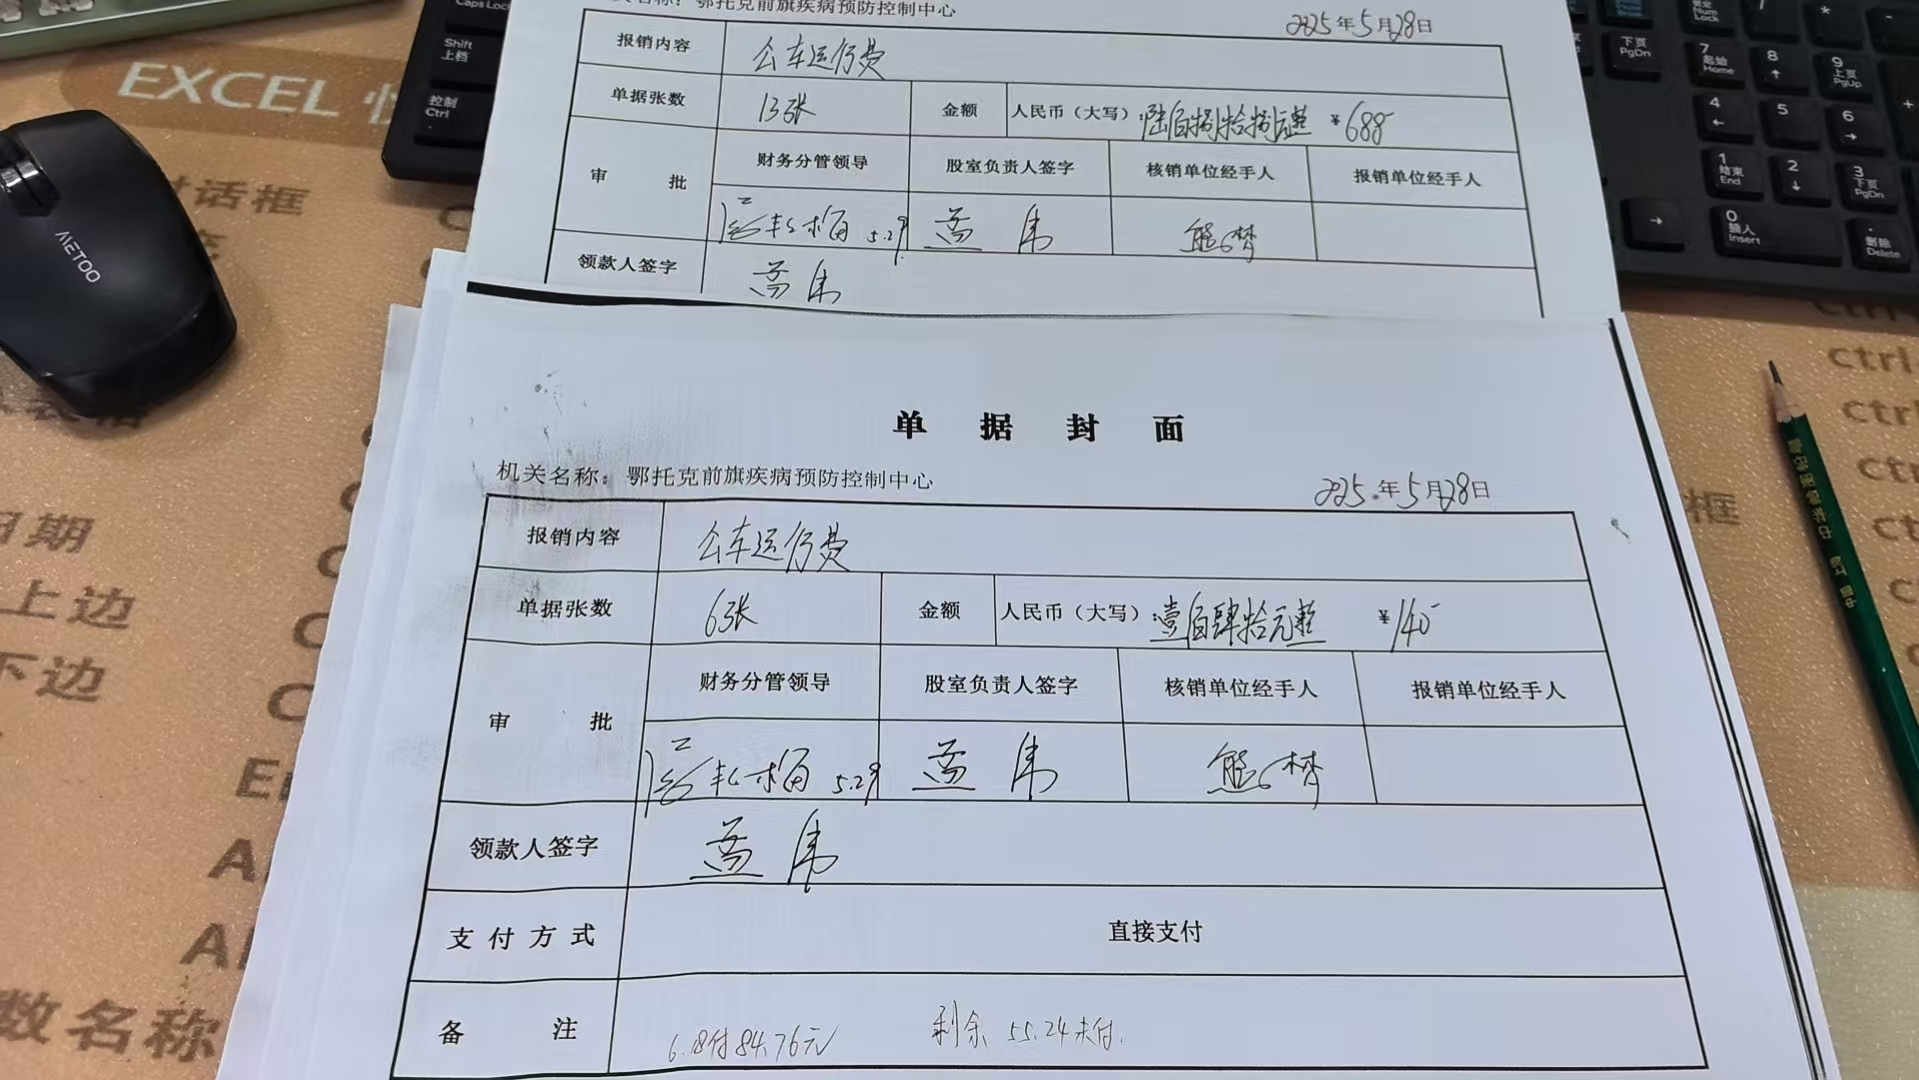 鄂托克前旗疾病预防控制中心 2025年5月28日
报销内容 公车运行费
单据张数 13张 金额 人民币（大写）：陆佰捌拾捌元整 ￥688-
审 批 财务分管领导 股室负责人签字 核销单位经手人 报销单位经手人
5.29 熊梦
领款人签字
单 据 封 面
机关名称：鄂托克前旗疾病预防控制中心 2025年5月28日
报销内容 公车运行费
单据张数 6张 金额 人民币（大写）：壹佰肆拾元整 ￥140-
审 批 财务分管领导 股室负责人签字 核销单位经手人 报销单位经手人
5.29 熊梦
领款人签字
支付方式 直接支付
备 注 6.18付84.76元 剩余 55.24未付.
EXCEL
对话框
日期
上边
下边
数名称
框
AIETOO
Caps Lock
Shift
上档
控制
Ctrl
下页
PgDn
Num
Lock
7
起始
Home
8
9
上页
PgUp
4
5
6
1
结束
End
2
3
下页
PgDn
0
插入
Insert
删除
Delete
中国